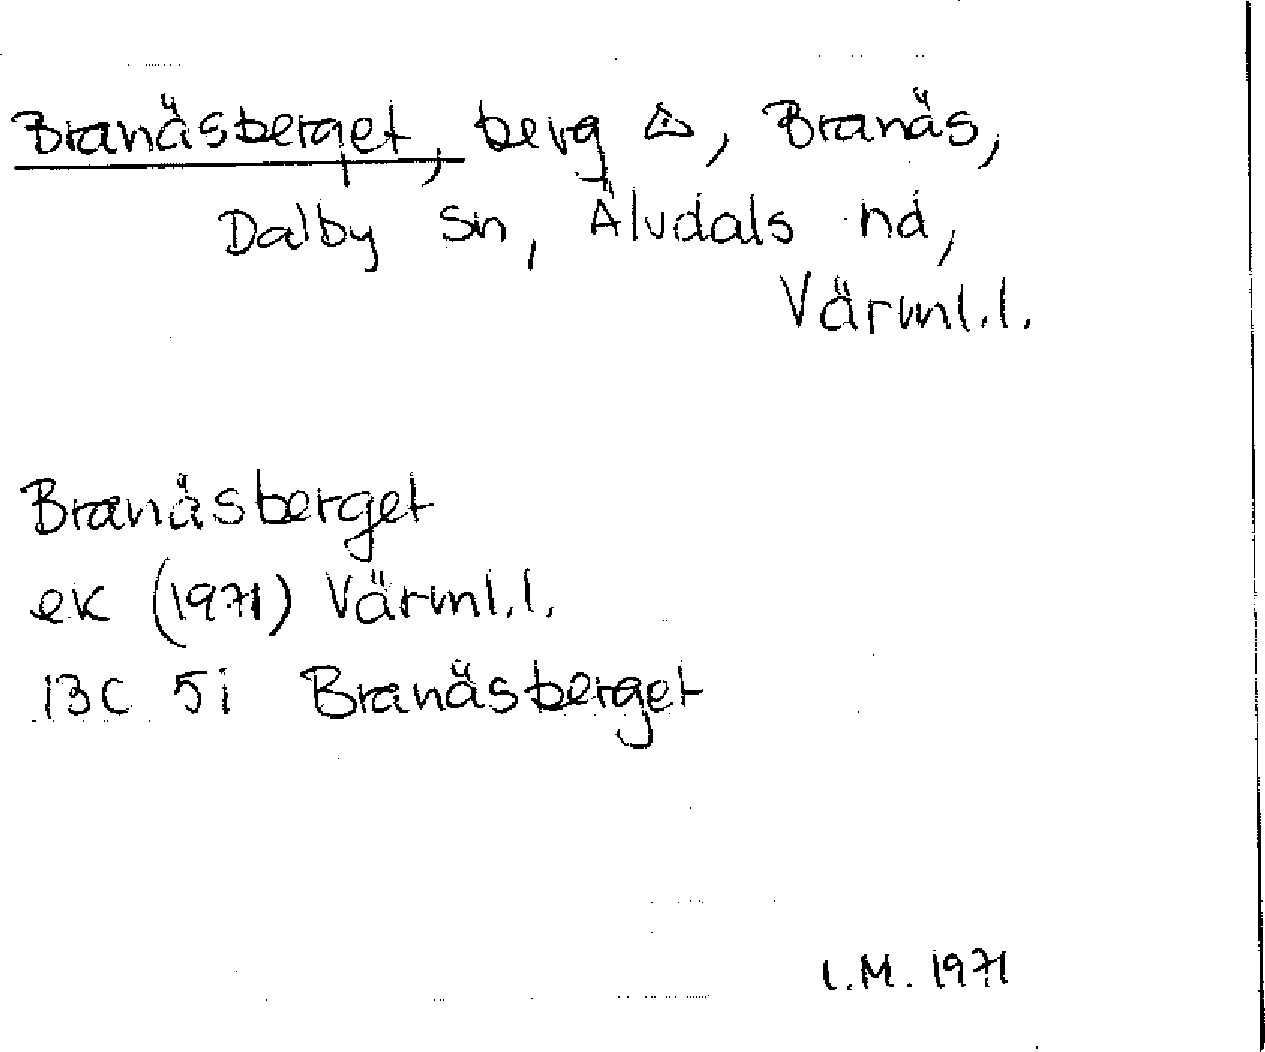 Branäsberget, berg △, Branäs,
Dalby sn, Älvdals hd,
Värml.l.
Branäsberget
ek (1971) Värml.l.
13C 5i Branäsberget
I.M. 1971